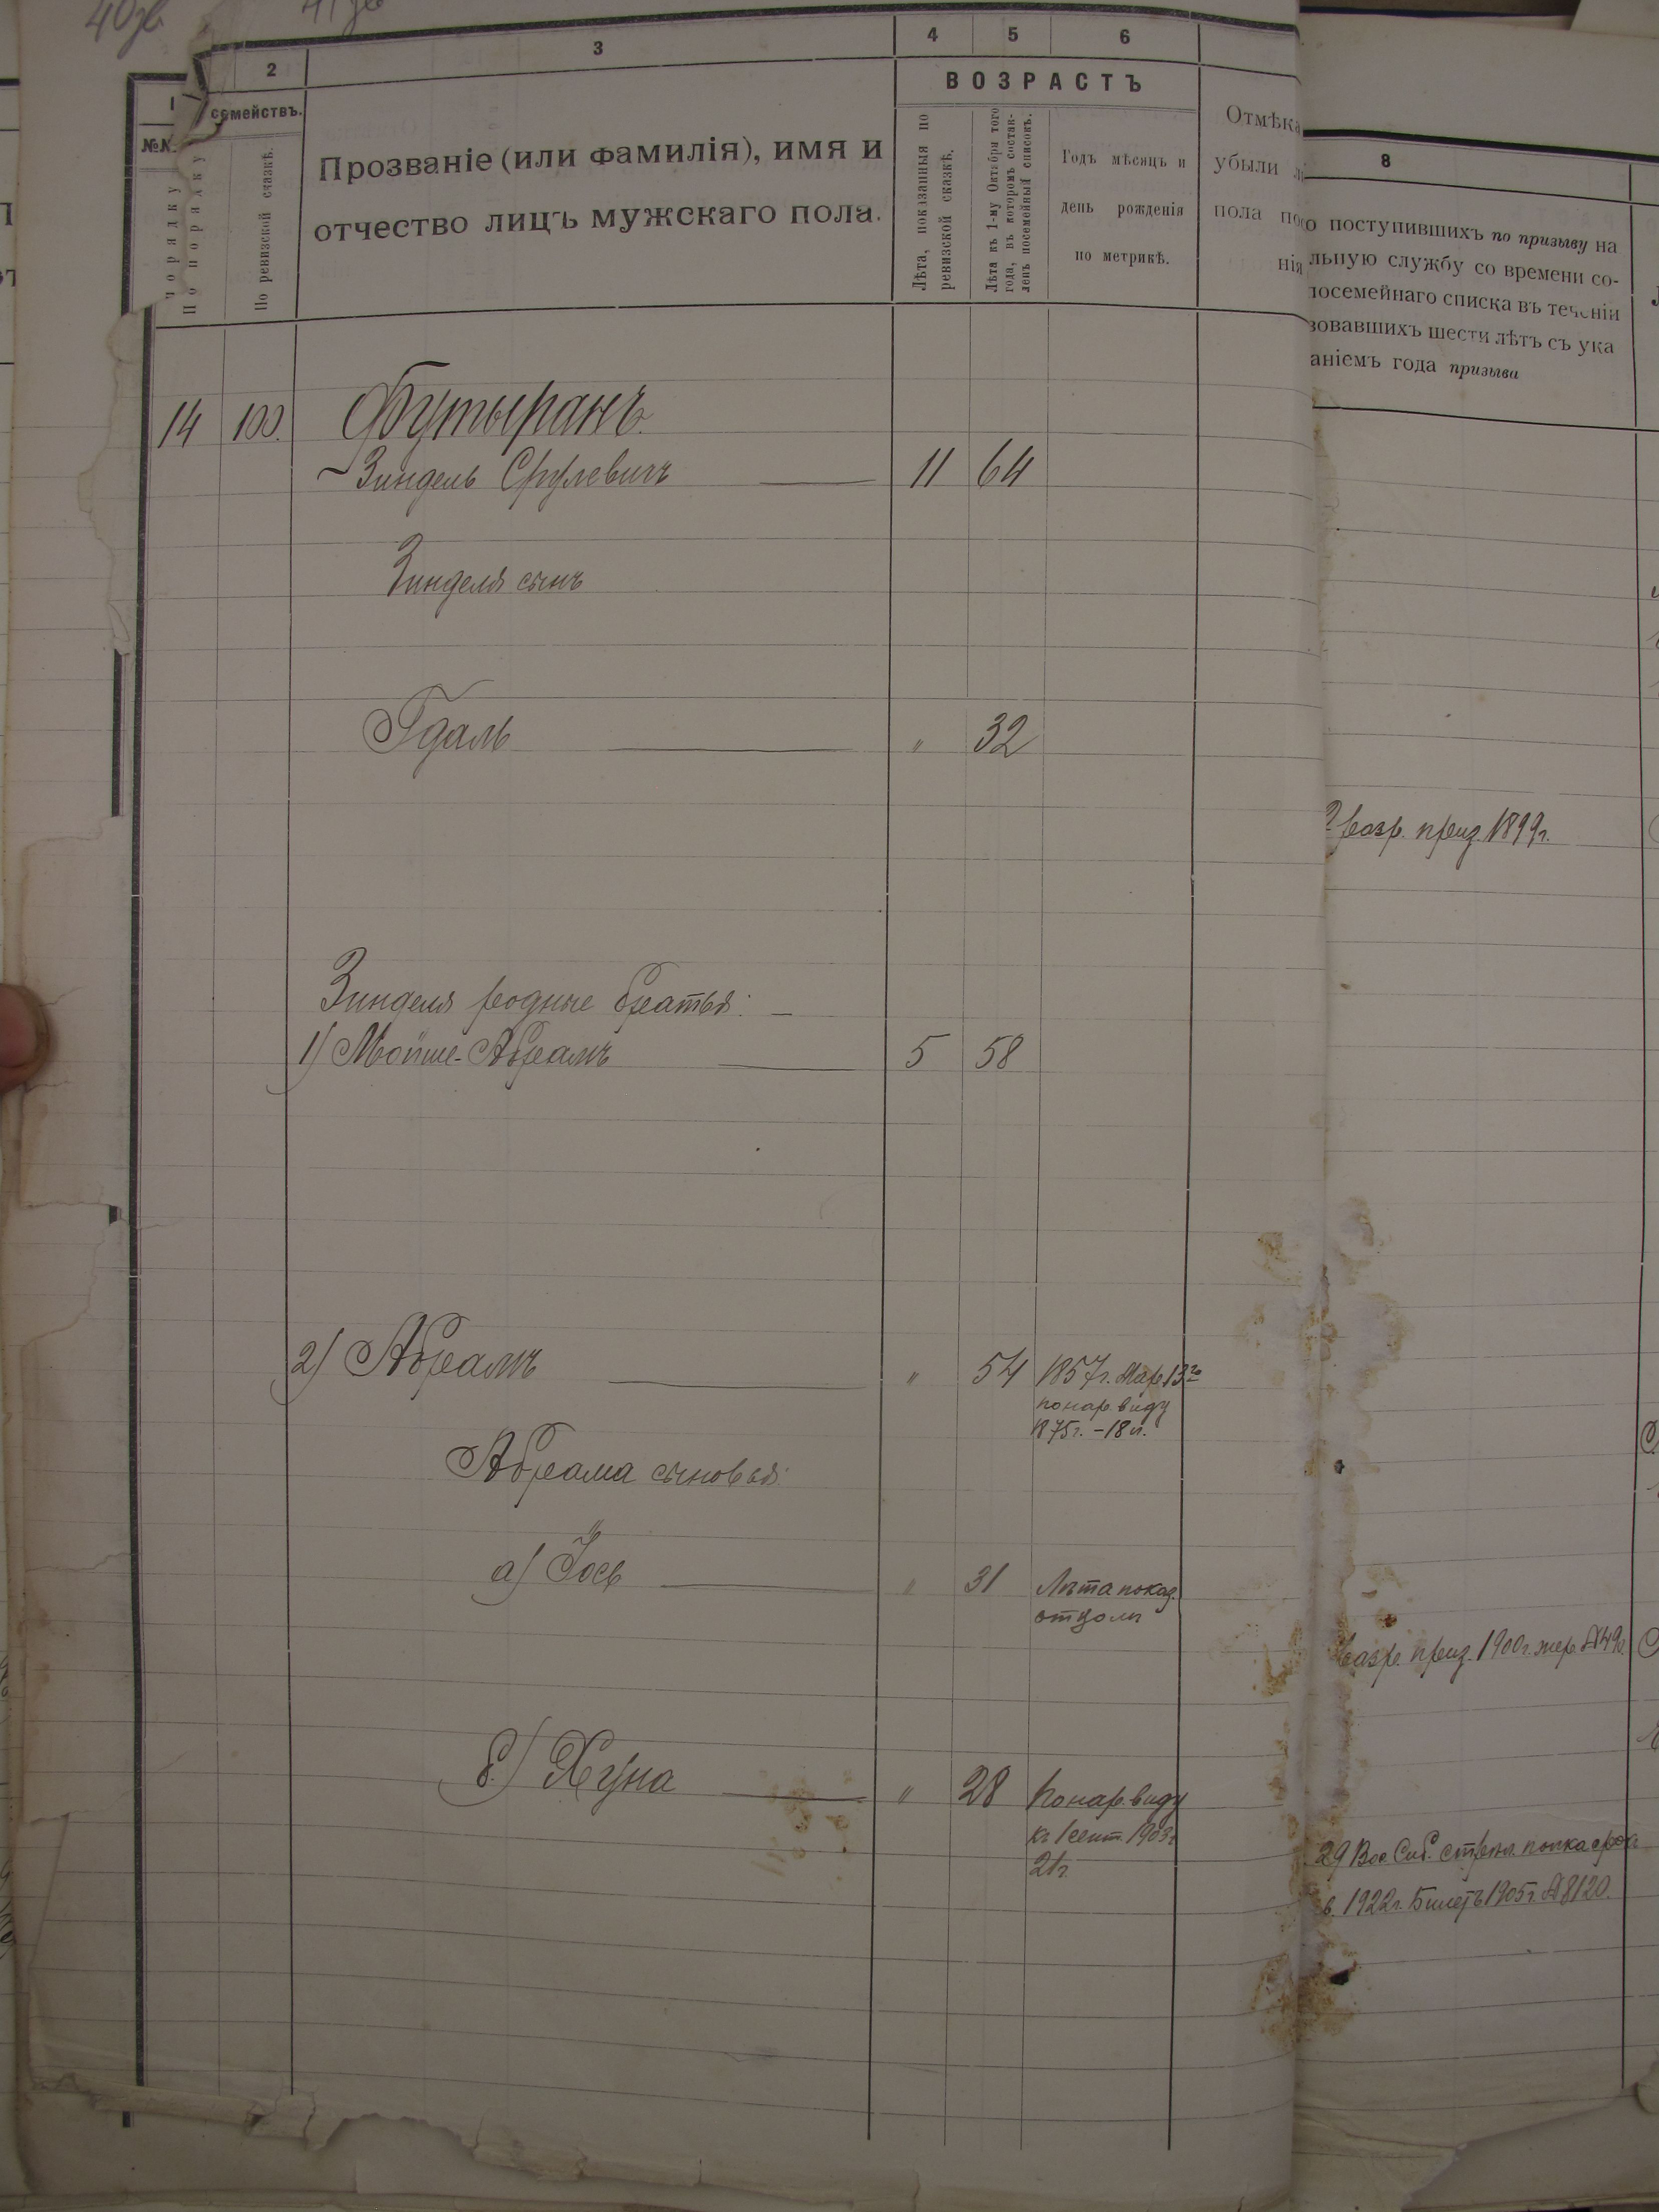 40 зв
41 зв
1
2
3
4
5
6
8
№№
семействъ.
По порядку
По ревизской сказкѣ.
Прозваніе (или фамилія), имя и
отчество лицъ мужскаго пола.
ВОЗРАСТЪ
Лѣта, показанныя по
ревизской сказкѣ.
Лѣта къ 1-му Октября того
года, въ которомъ состав-
ленъ посемейный списокъ.
Годъ мѣсяцъ и
день рожденія
по метрикѣ.
Отмѣка
убыли
пола
нія
о поступившихъ по призыву на
льную службу со времени со-
посемейнаго списка въ теченіи
зовавшихъ шести лѣтъ съ ука
аніемъ года призыва
14 100. Бутыранъ
Зиндель Срулевичъ 11 64
Зинделя сынъ
Гдаль " 32
разр. приз. 1899 г.
Зинделя родные братья:
1) Мойше-Абрамъ 5 58
2) Абрамъ " 54 1857 г. Мар. 13го
по нар. виду
1875 г. - 18 л.
Абрама сыновья:
а) Іось " 31 Лѣта показ.
отцомъ
разр. приз. 1900 г. жер. № 490
б) Хуна " 28 По нар. виду
къ 1 сент. 1903 г.
21 г.
29 Вос. Сиб. стрѣл. полка срок
в. 1922 г. Билетъ 1905 г. № 8120.